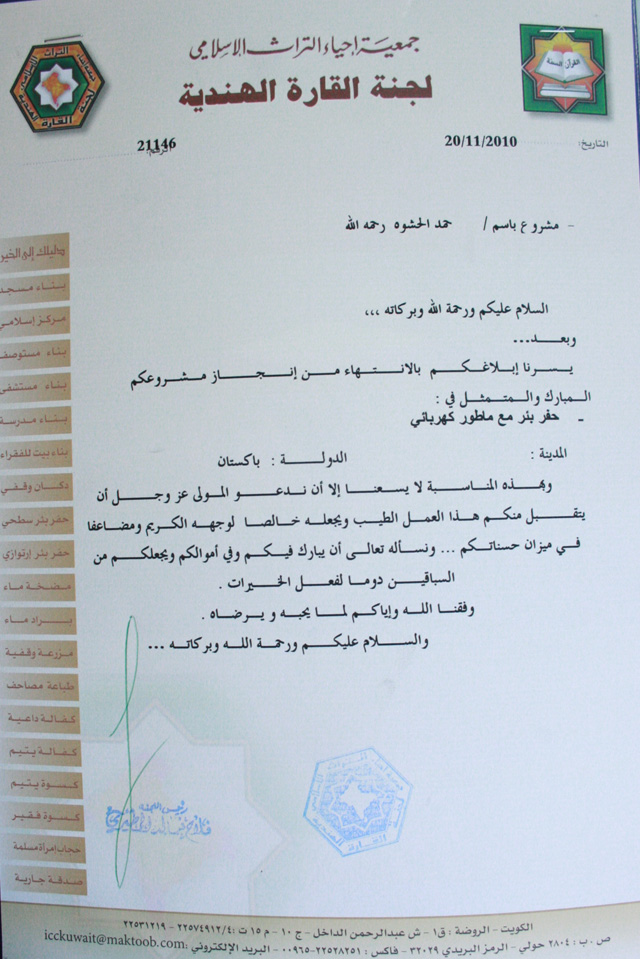 جمعية إحياء التراث الإسلامي
لجنة القارة الهندية
القرآن السنة
التاريخ: 20/11/2010
الرقم: 21146
- مشروع باسم / حمد الحشوه رحمه الله
السلام عليكم ورحمة الله وبركاته ،،،
وبعـــد...
يسرنا إبلاغكم بالانتهاء من إنجاز مشروعكم
المبارك والمتمثل في :
- حفر بئر مع ماطور كهربائي
المدينة : الدولة : باكستان
وبهذه المناسبة لا يسعنا إلا أن ندعو المولى عز وجل أن
يتقبل منكم هذا العمل الطيب ويجعله خالصا لوجهه الكريم ومضاعفا
في ميزان حسناتكم ... ونسأله تعالى أن يبارك فيكم وفي أموالكم ويجعلكم من
السباقين دوما لفعل الخيرات .
وفقنا الله وإياكم لما يحبه و يرضاه .
والسلام عليكم ورحمة الله وبركاته ...
دليلك إلى الخير
بناء مسجد
مركز إسلامي
بناء مستوصف
بناء مستشفى
بناء مدرسة
بناء بيت للفقراء
دكان وقفي
حفر بئر سطحي
حفر بئر إرتوازي
مضخة ماء
براد ماء
مزرعة وقفية
طباعة مصاحف
كفالة داعية
كفالة يتيم
كسوة يتيم
كسوة فقير
حجاب إمرأة مسلمة
صدقة جارية
رئيس اللجنة
القارة الهندية
الكويت - الروضة : ق١ - ش عبدالرحمن الداخل - ج ١٠ - م ١٥ ت : ٢٢٥٧٤٩١٢/٤ - ٢٢٥٣١٢١٩
ص . ب : ٢٨٠٤ حولي - الرمز البريدي ٣٢٠٢٩ - فاكس : ٢٢٥٢٨٢٥١-٠٠٩٦٥ - البريد الإلكتروني: icckuwait@maktoob.com